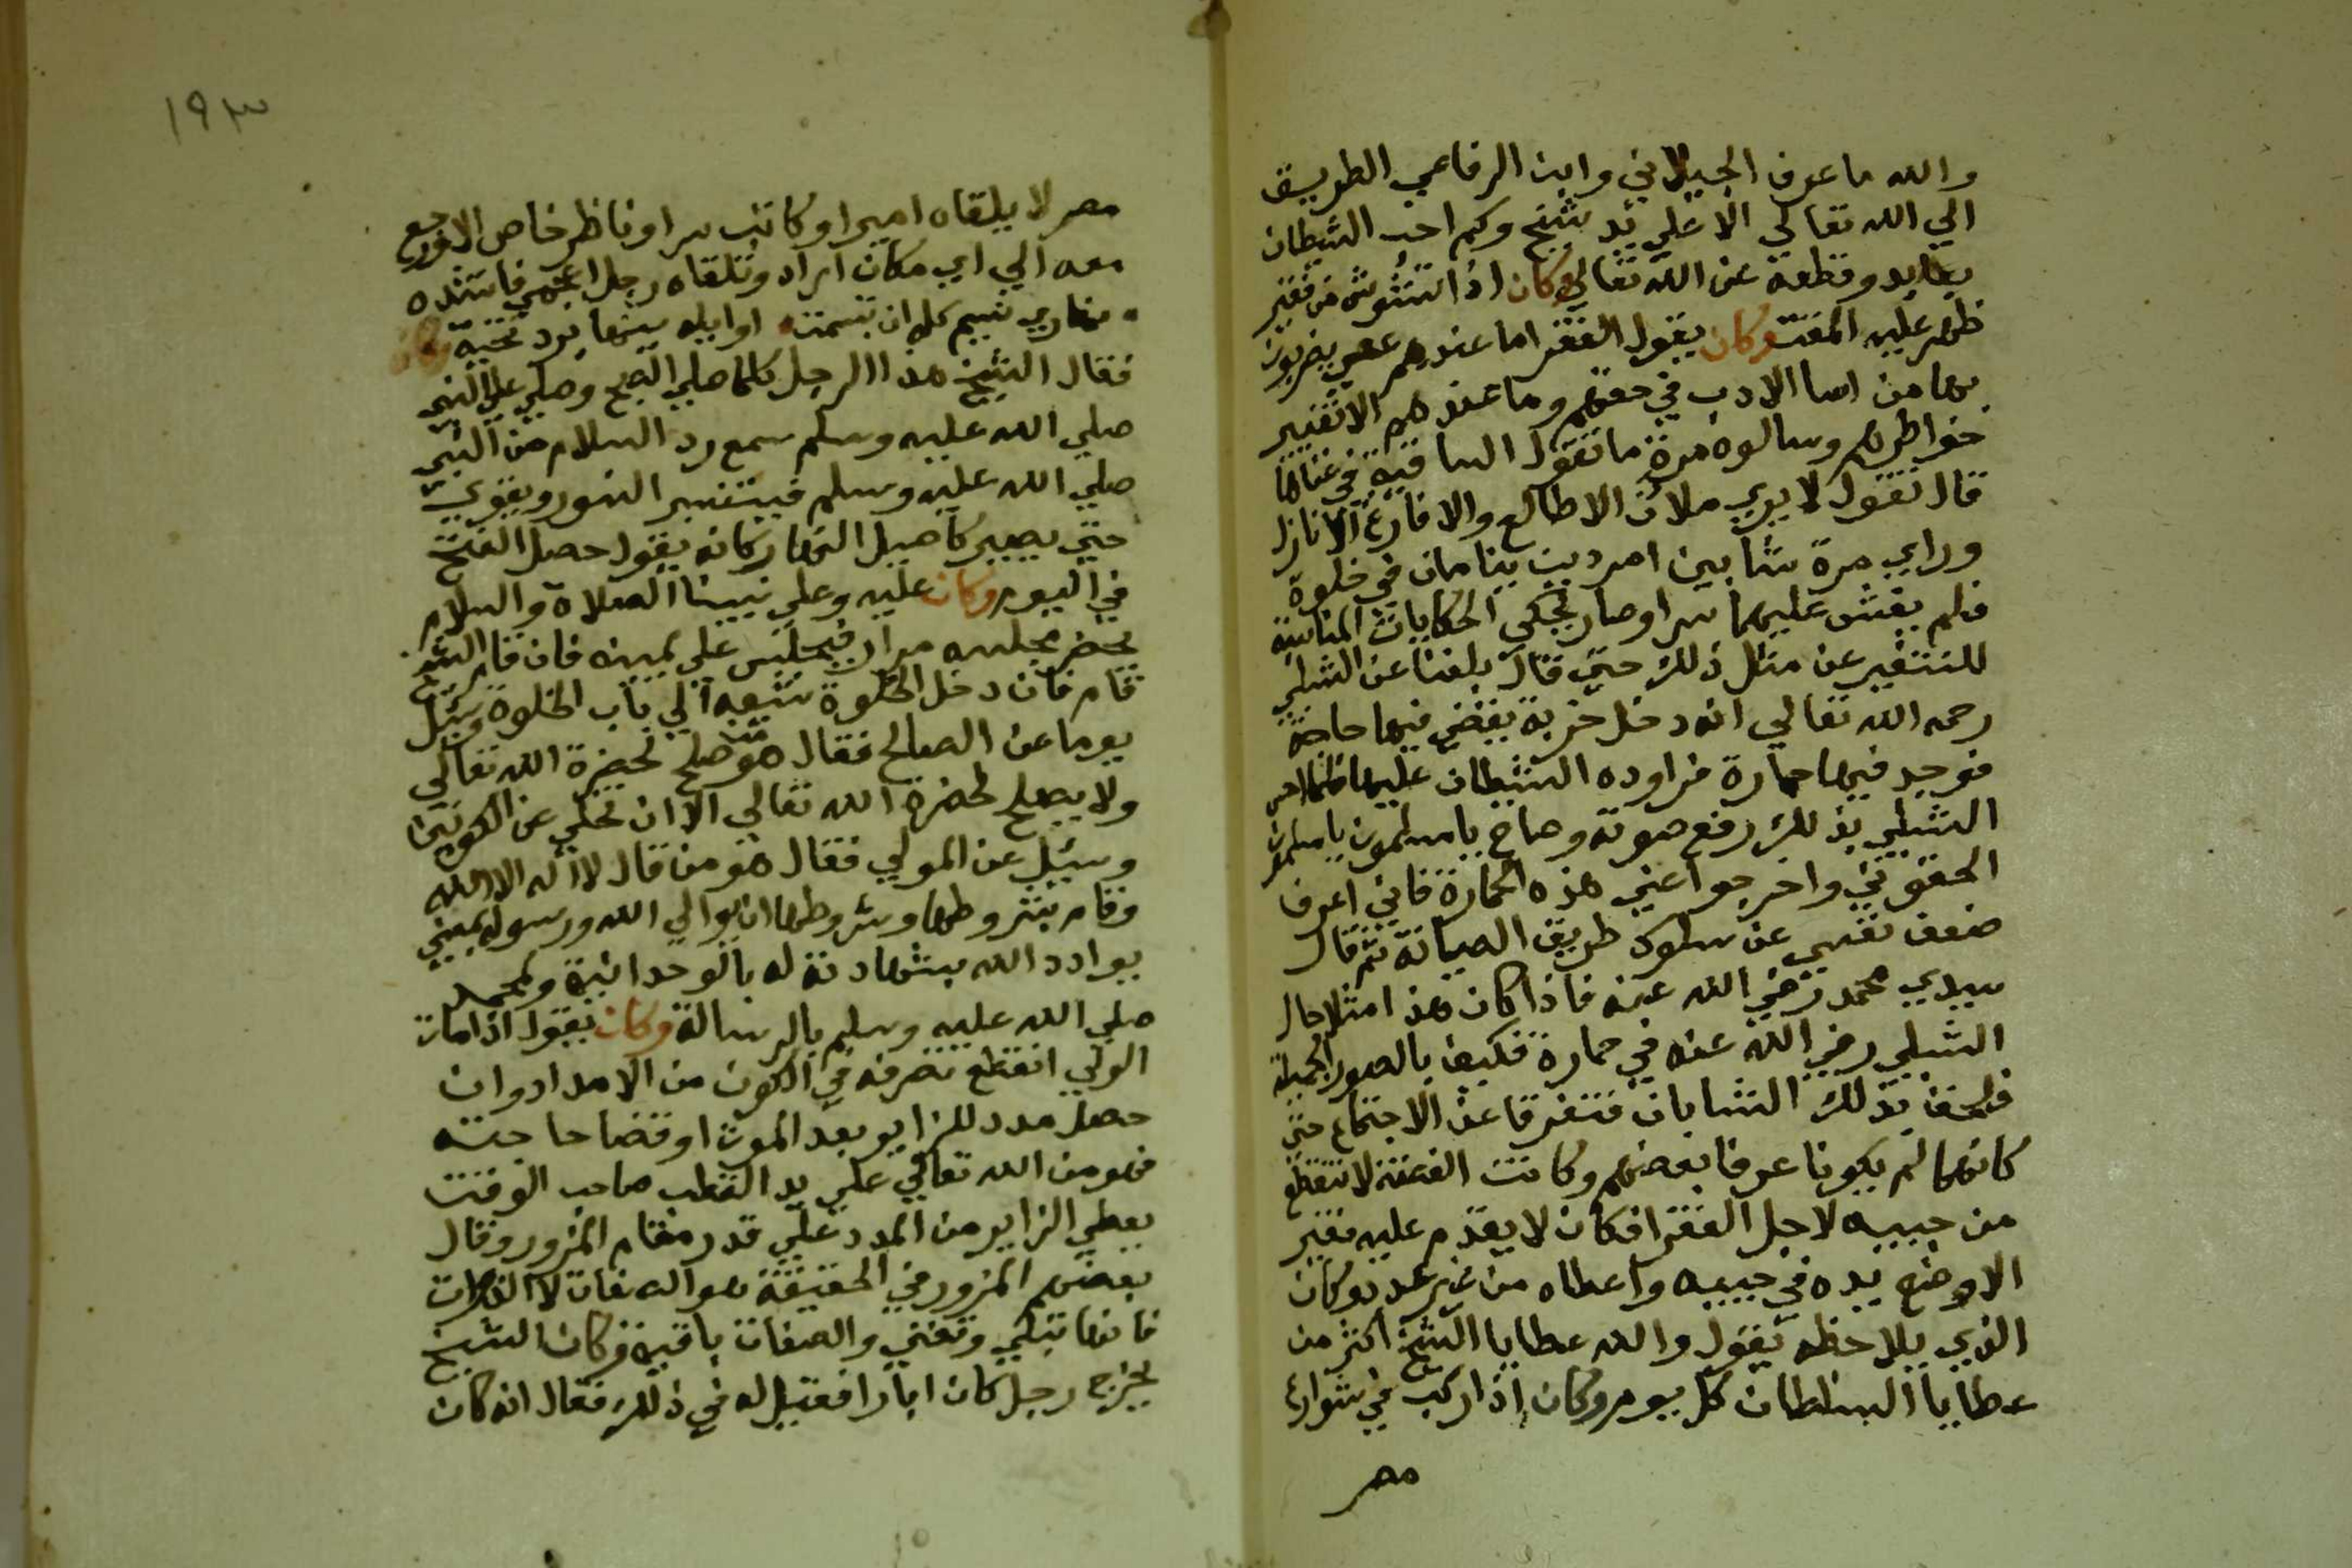 والله ما عرف الجيلاني وابن الرفاعي الطريق
الي الله تعالي الا علي يد شيخ وكم احب الشيطان
بطايد وقطعه عن الله تعالي وكان اذا تشوش من فقير
ظهر عليه المقت وكان يقول الفقرا ما عندهم عصي يضربون
بها من اسا الادب في حقهم وما عندهم الا تغيير
خواطرهم وسالوه مرة ما تقول الساقية في غناها
قال تقول لا يري ملان الا طالع والا فارغ الا نازل
وراي مرة شابين امردين ينامان في خلوة
فلم يفش عليهما سرا وصار يحكي الحكايات المناسبة
للتنفير عن مثل ذلك حتي قال بلغنا عن الشبلي
رحمه الله تعالي انه دخل خربة يقضي فيها حاجة
فوجد فيها حمارة فراوده الشيطان عليها فلما احس
الشبلي بذلك رفع صوته وصاح يا مسلمون يا مسلمون
الحقوني واخرجوا عني هذه الحمارة فاني اعرف
ضعف نفسي عن سلوك طريق الصيانة ثم قال
سيدي محمد رضي الله عنه فاذا كان هذا مثل حال
الشبلي رضي الله عنه في حمارة فكيف بالصور الجميلة
فلحظ بذلك الشابان فتفرقا عن الاجتماع حتي
كانهما لم يكونا عرفا بعضهم وكانت الفضه لا تنقطع
من جيبه لاجل الفقرا فكان لا يقدم عليه فقير
الا وضع يده في جيبه واعطاه من غير عدد وكان
الذي يلاحظه يقول والله عطايا الشيخ اكثر من
عطايا السلطان كل يوم وكان اذا ركب في شوارع
مصر
١٩٣
مصر لا يلقاه امير او كاتب سر او ناظر خاص الا ورجع
معه الي اي مكان اراد وتلقاه رجل اعجمي فانشده
نهاري نسيم كله ان تبسمت اوايله منها برد تحية وكان
فقال الشيخ هذا الرجل كلما صلي الصبح وصلي علي النبي
صلي الله عليه وسلم سمع رد السلام من النبي
صلي الله عليه وسلم فينتشر النور ويقوي
حتي يصير كاصيل النهار كانه يقول حصل الفتح
في اليوم وكان عليه وعلي نبينا الصلاة والسلام
يحضر مجلسه مرارا فيجلس علي يمينه فان قام الشيخ
قام فان دخل الخلوة شيعه الي باب الخلوة وسئل
يوما عن الصالح فقال هو من صلح لحضرة الله تعالي
ولا يصلح لحضرة الله تعالي الا ان تخلي عن الكونين
وسئل عن المولي فقال هو من قال لا اله الا الله
وقام بشروطها وشروطها ان يوالي الله ورسوله بمعني
يوادد الله بشهادته له بالوحدانية ولمحمد
صلي الله عليه وسلم بالرسالة وكان يقول اذا مات
الولي انقطع تصرفه في الكون من الامداد وان
حصل مدد للزاير بعد الموت او قضا حاجته
فهو من الله تعالي علي يد القطب صاحب الوقت
يعطي الزاير من المدد علي قدر مقام المزور وقال
بعضهم المزور في الحقيقة هو الصفات لا الذوات
فانها تبلي وتفني والصفات باقية وكان الشيخ
يخرج رجل كان ابارا فقيل له في ذلك فقال انه كان